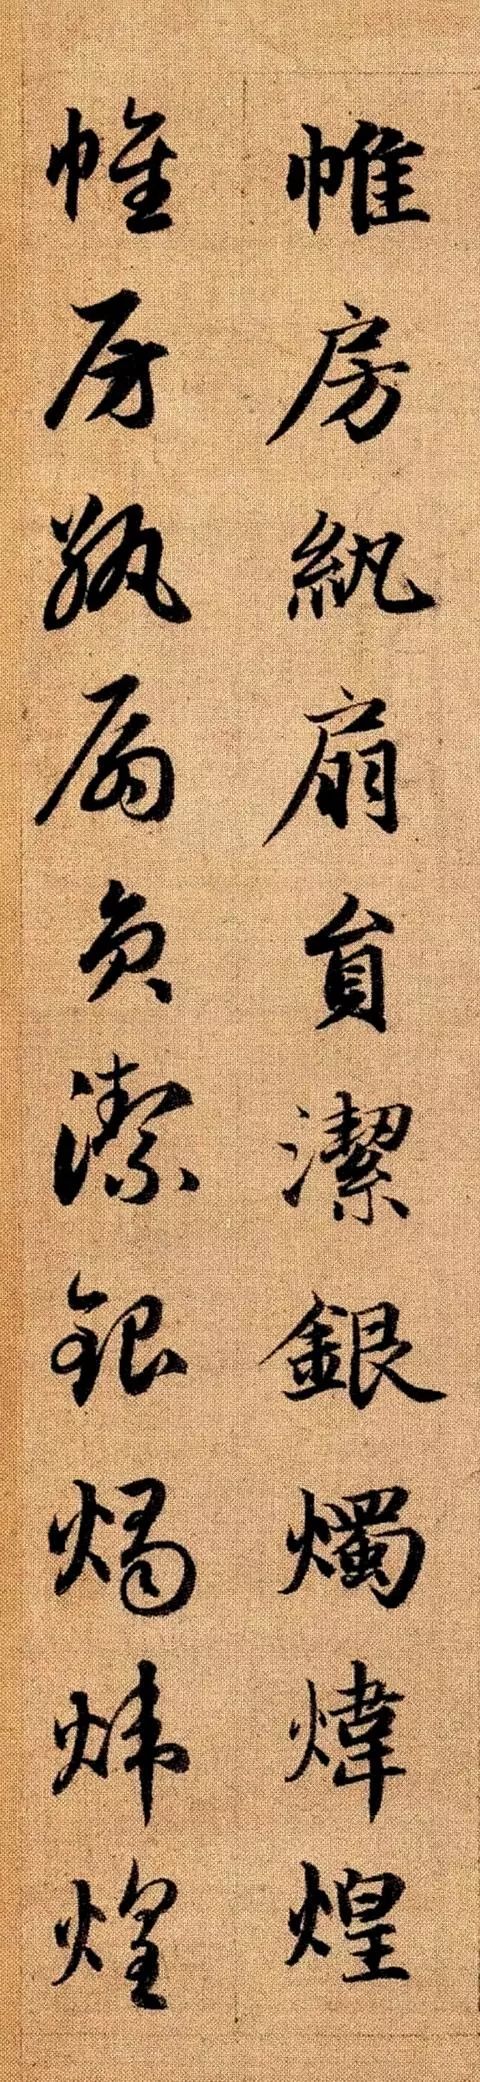 帷房紈扇貟潔銀燭煒煌
帷房紈扇貟潔銀燭煒煌